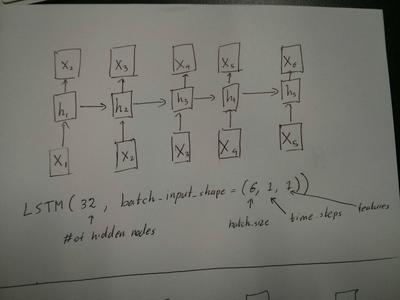 X₂ X₃ X₄ X₅ X₆
h₁ h₂ h₃ h₄ h₅
X₁ X₂ X₃ X₄ X₅
LSTM(32, batch_input_shape=(6, 1, 1))
#of hidden nodes batch_size time_steps features